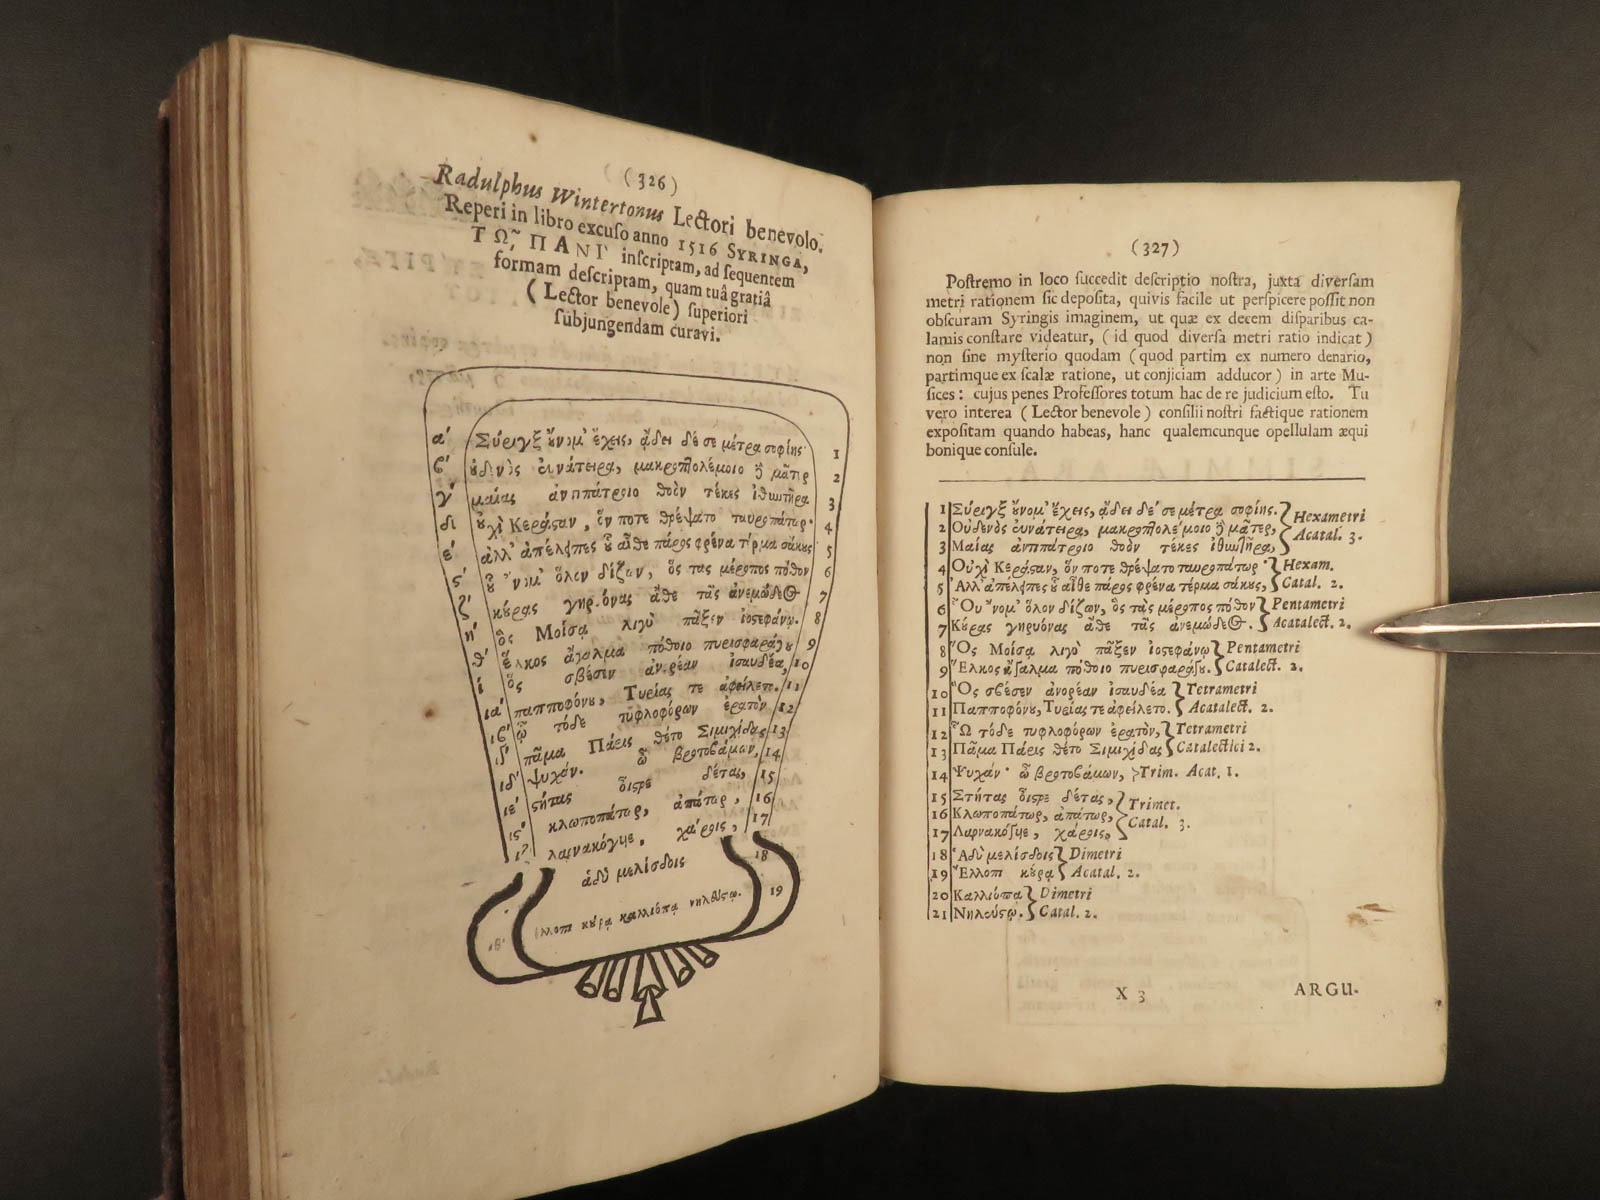 (326)
Radulphus Wintertonus Lectori benevolo.
Reperi in libro excuſo anno 1516 SYRINGA,
ΤΩ͂ ΠΑΝΙ inſcriptam, ad ſequentem
formam deſcriptam, quam tuâ gratiâ
(Lector benevole) ſuperiori
ſubjungendam curavi.
α΄ Σύριγξ οὔνομ' ἔχεις, ᾄδει δέ σε μέτρα σοφίης· 1
β΄ εὐνάτειρα, μακροπτολέμοιο 2
γ΄ μαίας ἀντιπάτροιο θοὸν τέκες ἰθυντῆρα 3
οὐχὶ Κεράσαν, ὅν ποτε θρέψατο ταυροπάτωρ· 4
ε΄ ἀλλ' πάρος φρένα τέρμα σάκους 5
ὅλον δίζων, ὃς τᾶς μέροπος πόθον 6
ζ΄ γηρυόνας ἆθε τᾶς ἀνεμώδεος 7
η΄ ὃς Μοίσᾳ λιγὺ πᾶξεν ἰοστεφάνῳ· 8
θ΄ ἕλκος ἄγαλμα πόθοιο πυρισφαράγου 9
ί ὃς σβέσεν ἀνορέαν ἰσαυδέα, 10
ια΄ παπποφόνου, Τυρίας τε ἀφείλετ. 11
ιβ΄ ᾧ τόδε τυφλοφόρων ἐρατὸν 12
πᾶμα Πάρις θέτο Σιμιχίδας 13
ιδ΄ ψυχάν. ᾧ βροτοβάμων, 14
ιε΄ στήτας οἶστρε δέτας, 15
ις΄ κλωποπάτωρ, ἀπάτωρ, 16
ιζ΄ λαρνακόγυιε, χάροις, 17
ἁδὺ μελίσδοις 18
ἔλλοπι κούρᾳ καλλιόπᾳ νηλεύστῳ. 19
(327)
Poſtremo in loco ſuccedit deſcriptio noſtra, juxta diverſam
metri rationem ſic depoſita, quivis facile ut perſpicere poſſit non
obſcuram Syringis imaginem, ut quæ ex decem diſparibus ca-
lamis conſtare videatur, (id quod diverſa metri ratio indicat)
non ſine myſterio quodam (quod partim ex numero denario,
partimque ex ſcalæ ratione, ut conjiciam adducor) in arte Mu-
ſices: cujus penes Profeſſores totum hac de re judicium eſto. Tu
vero interea (Lector benevole) conſilii noſtri factique rationem
expoſitam quando habeas, hanc qualemcunque opellulam æqui
bonique conſule.
1 Σύριγξ οὔνομ' ἔχεις, ᾄδει δέ σε μέτρα σοφίης. Hexametri
2 Οὐδενὸς εὐνάτειρα, μακροπτολέμοιο δὲ μᾶτερ, Acatal. 3.
3 Μαίας ἀντιπάτροιο θοὸν τέκες ἰθυντῆρα,
4 Οὐχὶ Κεράσαν, ὅν ποτε θρέψατο ταυροπάτωρ· Hexam.
5 Ἀλλ' πάρος φρένα τέρμα σάκους, Catal. 2.
6 Οὔνομ' ὅλον δίζων, ὃς τᾶς μέροπος πόθον Pentametri
7 Κούρας γηρυόνας ἆθε τᾶς ἀνεμώδεος. Acatalect. 2.
8 Ὃς Μοίσᾳ λιγὺ πᾶξεν ἰοστεφάνῳ Pentametri
9 Ἕλκος ἄγαλμα πόθοιο πυρισφαράγου. Catalect. 2.
10 Ὃς σβέσεν ἀνορέαν ἰσαυδέα Tetrametri
11 Παπποφόνου, Τυρίας τε ἀφείλετο. Acatalect. 2.
12 Ὧ τόδε τυφλοφόρων ἐρατὸν, Tetrametri
13 Πᾶμα Πάρις θέτο Σιμιχίδας Catalectici 2.
14 Ψυχάν· ᾧ βροτοβάμων, Trim. Acat. 1.
15 Στήτας οἶστρε δέτας, Trimet.
16 Κλωποπάτωρ, ἀπάτωρ, Catal. 3.
17 Λαρνακόγυιε, χάροις,
18 Ἁδὺ μελίσδοις Dimetri
19 Ἔλλοπι κούρᾳ Acatal. 2.
20 Καλλιόπᾳ Dimetri
21 Νηλεύστῳ. Catal. 2.
X 3 ARGU-